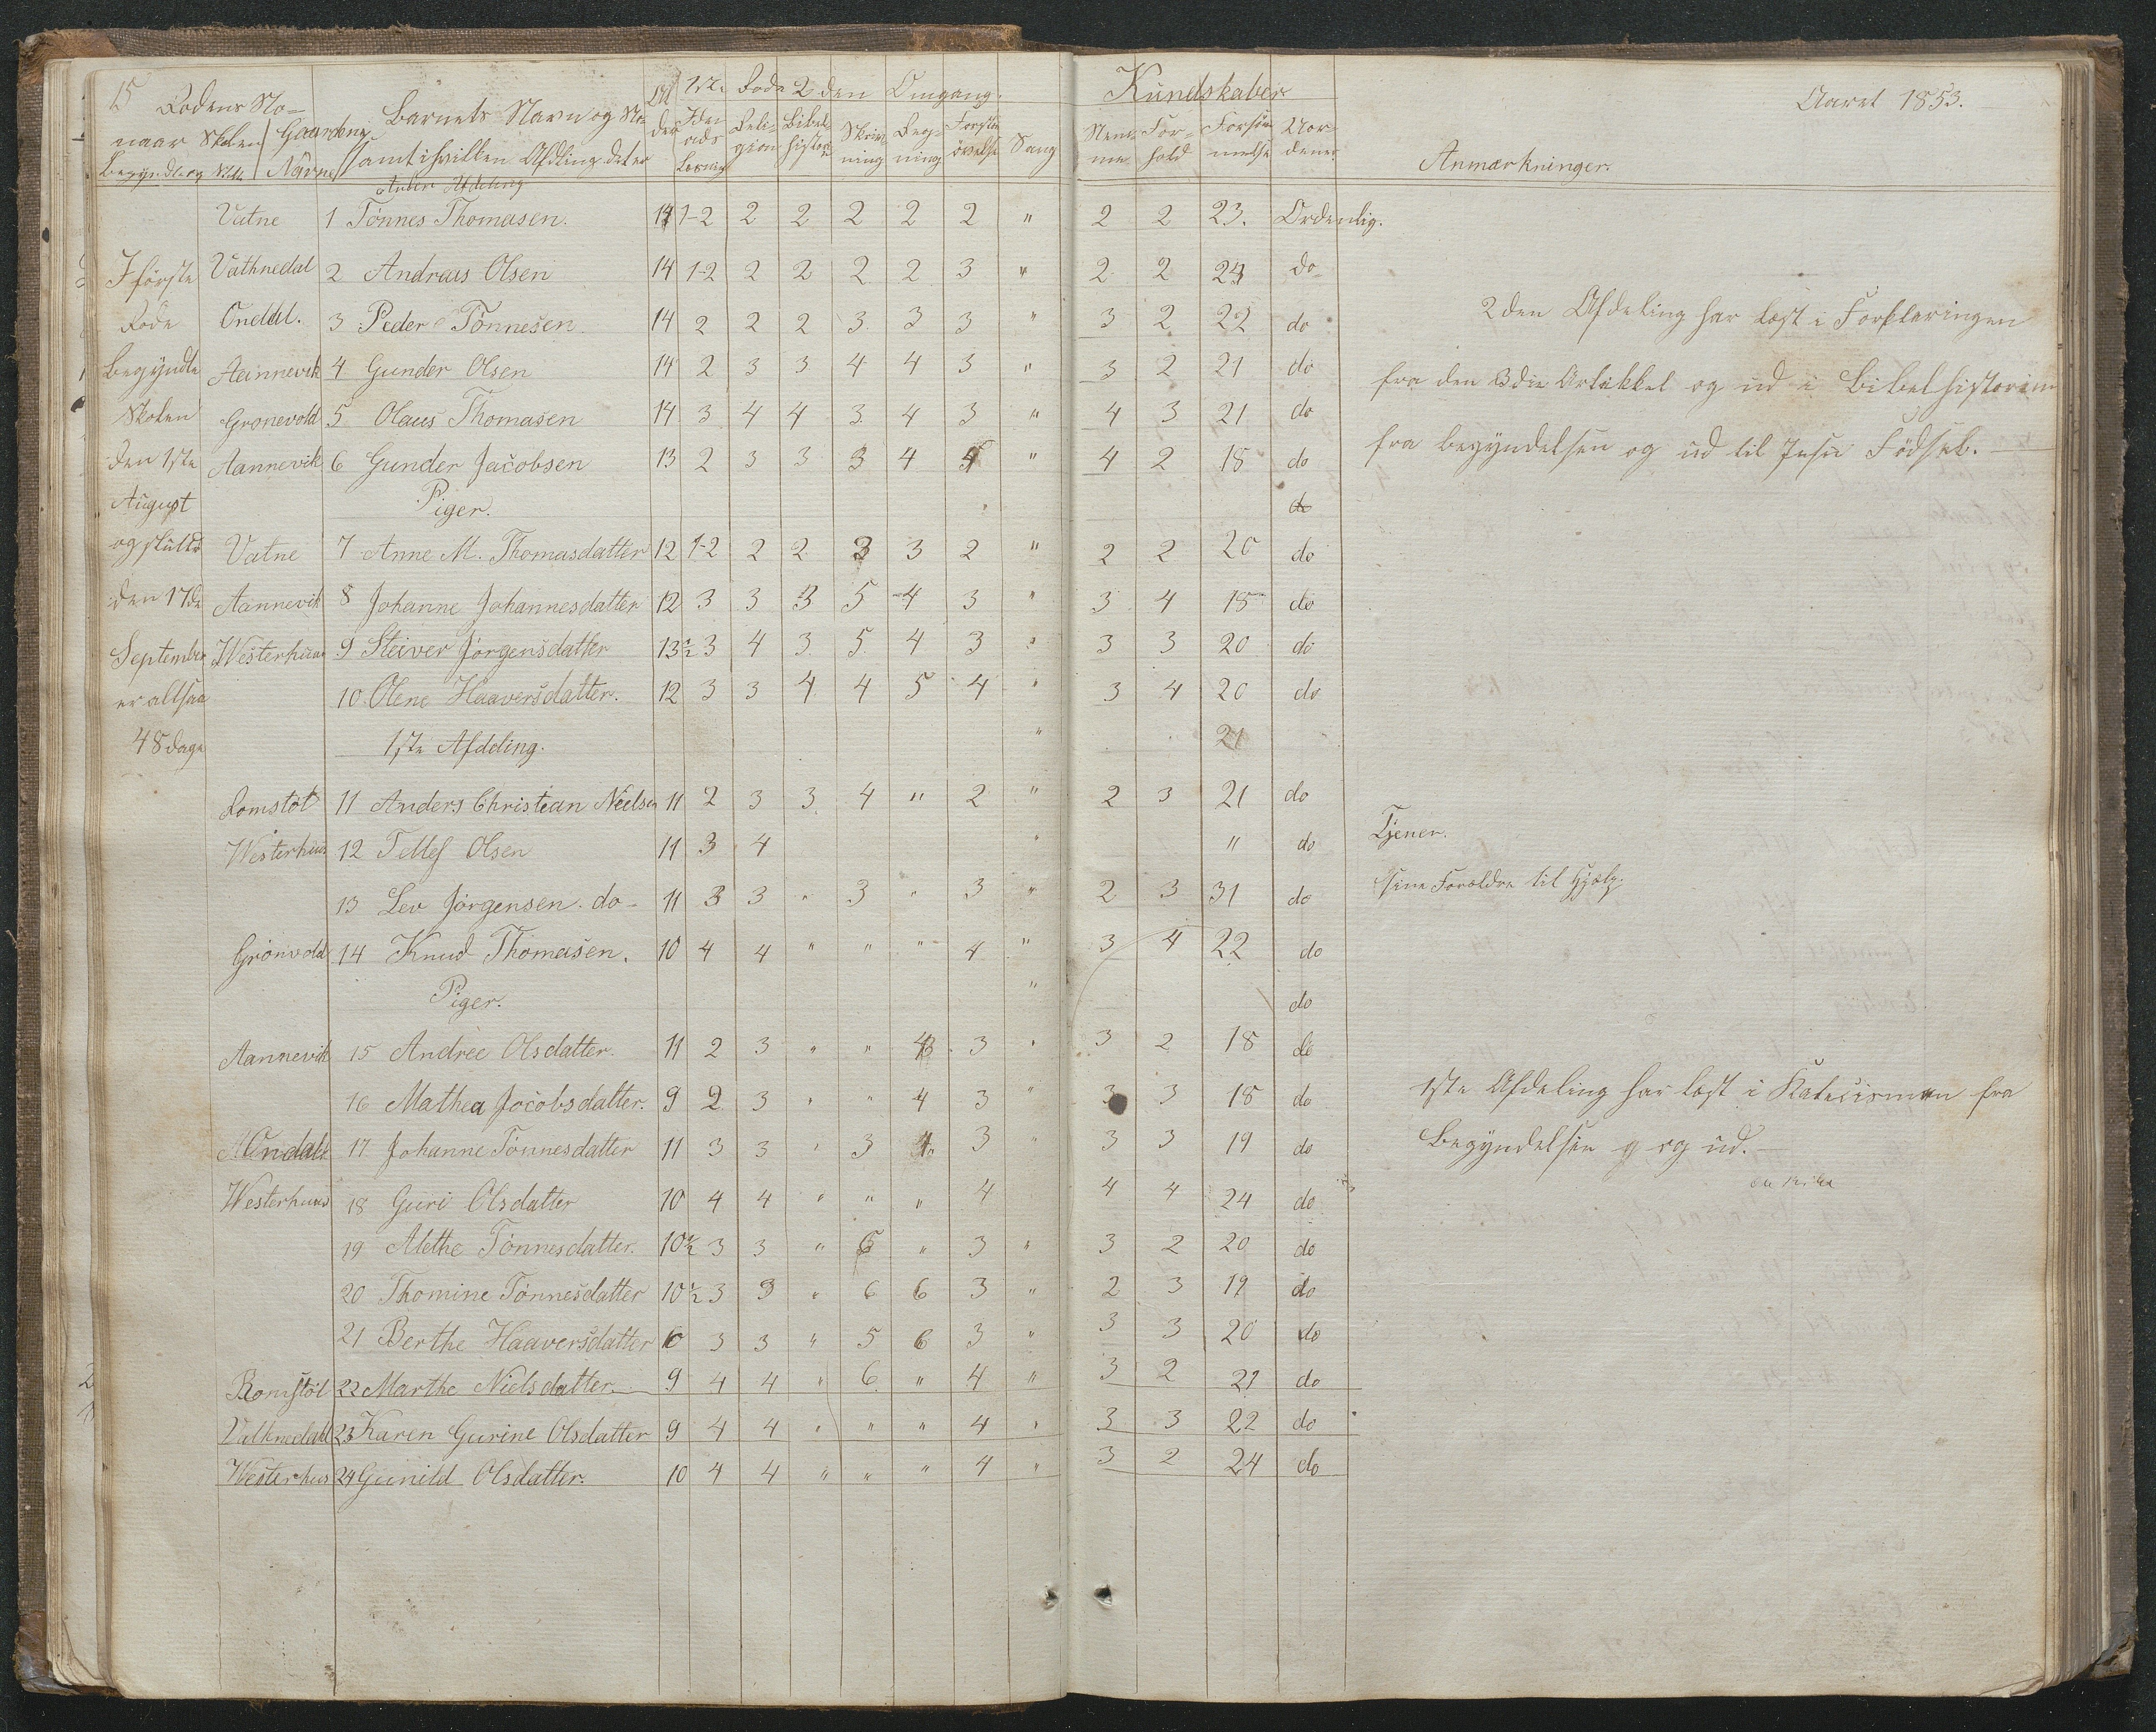 15 Aaret 1853.
Rodens No- Barnets Navn og 1ste Rode 2den Omgang. Kundskaber
naar Skolen Gaardens samt hvilken Afdling det er Reli- Bibel- Skriv- Reg- Forstan Sang Nem- For- Forsöm- Uor-
Begyndte og Navne gion histor ning ning övelse me hold melse dener Anmærkninger.
Anden Afdeling
Vatne 1 Tönnes Thomasen. 14 1-2 2 2 2 2 2 " 2 2 23. Ordenlig.
I förste Vathnedal 2 Andreas Olsen 14 1-2 2 2 2 2 3 " 2 2 24 do
Rode Onddal. 3 Peder Tönnesen 14 2 2 2 3 3 3 " 3 2 22 do
begyndte Aeinnevik 4 Gunder Olsen 14 2 3 3 4 4 3 " 3 2 21 do
Skolen Gronevold 5 Olaus Thomasen 14 3 4 4 3 4 3 " 4 3 21 do
den 1ste Aannevik 6 Gunder Jacobsen 13 2 3 3 3 4 " 4 2 18 do
August Piger. do
og sluttet Vatne 7 Anne M. Thomasdatter 12 1-2 2 2 3 3 2 " 2 2 20 do
den 17de Aannevik 8 Johanne Johannesdatter 12 3 3 3 5 4 3 " 3 4 18 do
September Westerhuus 9 Steiver Jörgensdatter 13½ 3 4 3 5 4 3 " 3 3 20 do
er altsaa 10 Olene Haaversdatter. 12 3 3 4 4 5 4 " 3 4 20 do
48 dage 1ste Afdeling. " 21
Romstöl 11 Anders Christian Nielsen 11 2 3 3 4 " 2 " 2 3 21 do
Westerhuus 12 Tellef Olsen 11 3 4 " " do Tjener.
13 Lev Jörgensen do 11 3 3 " 3 " 3 " 2 3 31 do sine Forældre til Hjelp.
Grönvold 14 Knud Thomasen. 10 4 4 " " " 4 " 3 4 22 do
Piger. " do
Aannevik 15 Andrée Olsdatter. 11 2 3 " " 3 " 3 2 18 do
16 Mathea Jocobsdatter. 9 2 3 " " 4 3 " 3 3 18 do
Ondal 17 Johanne Tönnesdatter 11 3 3 " 3 4 3 " 3 3 19 do
Westerhuus 18 Guri Olsdatter 10 4 4 " " " 4 4 4 24 do
19 Alethe Tönnesdatter. 10½ 3 3 " 6 " 3 " 3 2 20 do
20 Thomine Tönnesdatter 10½ 3 3 " 6 6 3 " 2 3 19 do
21 Berthe Haaversdatter 3 3 " 5 6 3 " 3 3 20 do
Romstöl 22 Marthe Nielsdatter. 9 4 4 " 6 " 4 " 3 2 21 do
Vathnedal 23 Karen Gurine Olsdatter 9 4 4 " " " 4 " 3 3 22 do
Westerhus 24 Gunild Olsdatter. 10 4 4 " " " 4 " 3 2 24 do
2den Afdeling har læst i Forklaringen
fra den 3die Artikkel og ud i Bibelhistorien
fra begyndelsen og ud til Jesu Födsel.
1ste Afdeling har læst i Katecismen fra
Begyndelsen og ud.